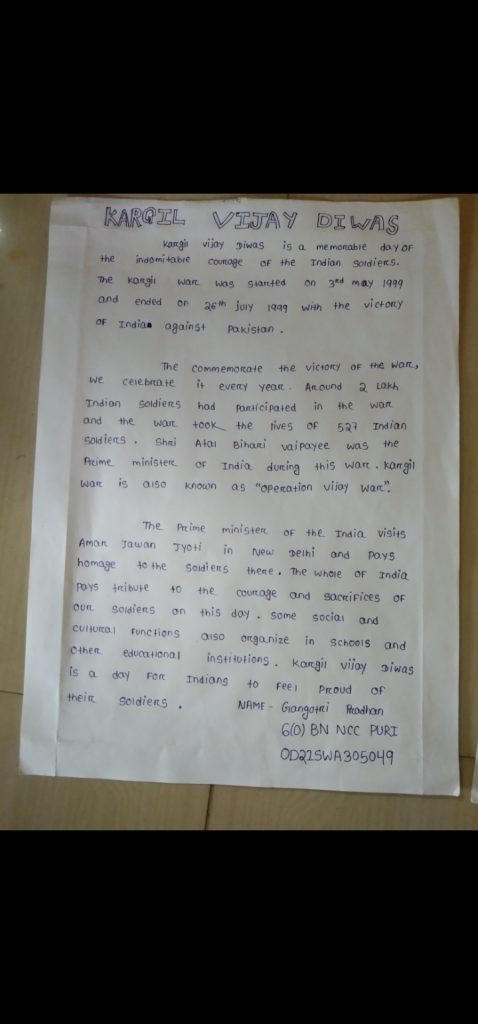 KARGIL VIJAY DIWAS
Kargil vijay Diwas is a memorable day of
the indomitable courage of the Indian soldiers.
The Kargil war was started on 3rd may 1999
and ended on 26th july 1999 with the victory
of India against Pakistan.
The commemorate the victory of the war,
we celebrate it every year. Around 2 lakh
Indian soldiers had participated in the war
and the war took the lives of 527 Indian
soldiers. Shri Atal Bihari vajpayee was the
Prime minister of India during this war. Kargil
war is also known as "operation vijay war".
The Prime minister of the India visits
Amar Jawan Jyoti in New Delhi and pays
homage to the soldiers there. The whole of India
pays tribute to the courage and sacrifices of
our soldiers on this day. some social and
cultural functions also organize in schools and
other educational institutions. Kargil vijay Diwas
is a day for Indians to feel proud of
their soldiers.
NAME - Gangotri Pradhan
6(O) BN NCC PURI
OD22SWA305049